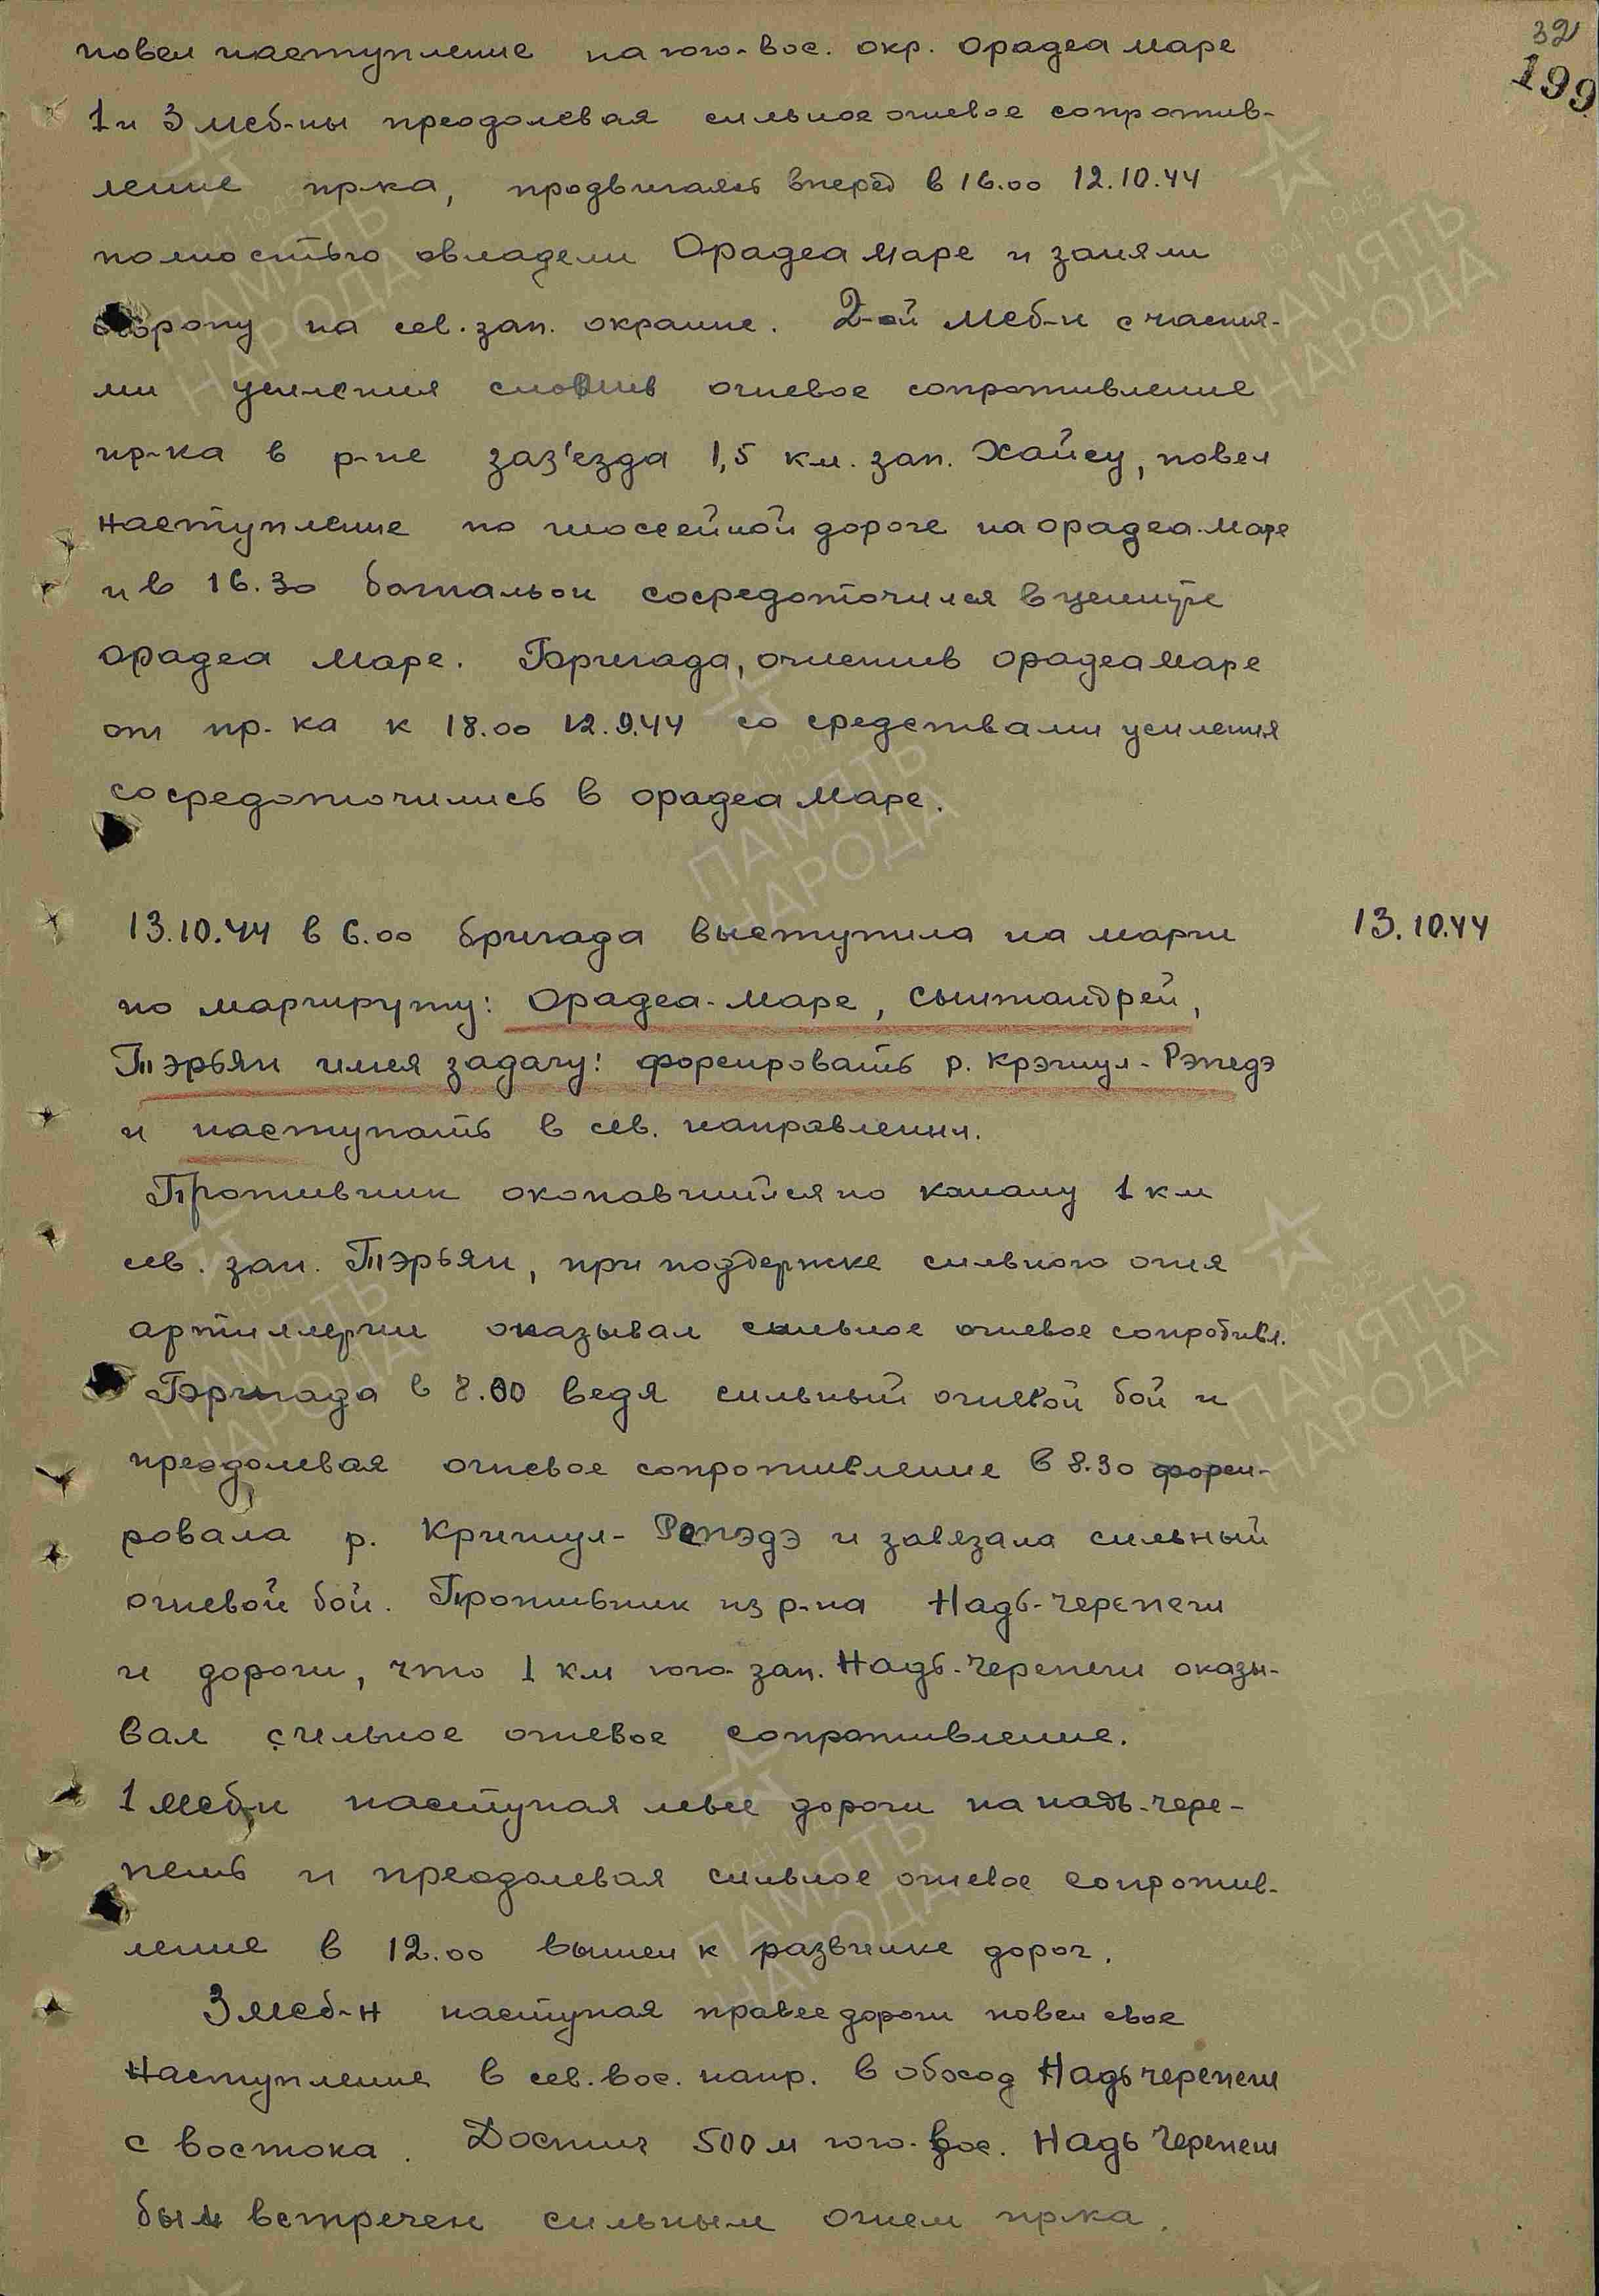 32
199
повел наступление на юго-вос. окр. Орадеа маре
1 и 3 мсб-ны преодолевая сильное огневое сопротив-
ление пр-ка, продвигаясь вперед в 16.00 12.10.44
полностью овладели Орадеа маре и заняли
оборону на сев. зап. окраине. 2-ой мсб-н с частя-
ми усиления сломив огневое сопротивление
пр-ка в р-не заз'езда 1,5 км. зап. Хайеу, повел
наступление по шоссейной дороге на орадеа-маре
и в 16.30 батальон сосредоточился в центре
орадеа маре. Бригада, очистив орадеа маре
от пр-ка к 18.00 12.9.44 со средствами усиления
сосредоточились в орадеа маре.
13.10.44 в 6.00 бригада выступила на марш
13.10.44
по маршруту: Орадеа-маре, Сынтандрей,
Тэрьян имея задачу: форсировать р. Крэшул-Рэпедэ
и наступать в сев. направлении.
Противник окопавшийся по каналу 1 км
сев. зап. Тэрьян, при поддержке сильного огня
артиллерии оказывал сильное огневое сопротивл.
Бригада в 8.00 ведя сильный огневой бой и
преодолевая огневое сопротивление в 8.30 форси-
ровала р. Кришул-Репэдэ и завязала сильный
огневой бой. Противник из р-на Надь-Черепеш
и дороги, что 1 км юго-зап. Надь-Черепеш оказы-
вал сильное огневое сопротивление.
1 мсб-н наступая левее дороги на надь-чере-
пешь и преодолевая сильное огневое сопротив-
ление в 12.00 вышел к развилке дорог.
3 мсб-н наступая правее дороги повел свое
наступление в сев. вос. напр. в обход Надь черепеш
с востока. Достиг 500 м юго-вос. Надь Черепеш
был встречен сильным огнем пр-ка.
ПАМЯТЬ
НАРОДА